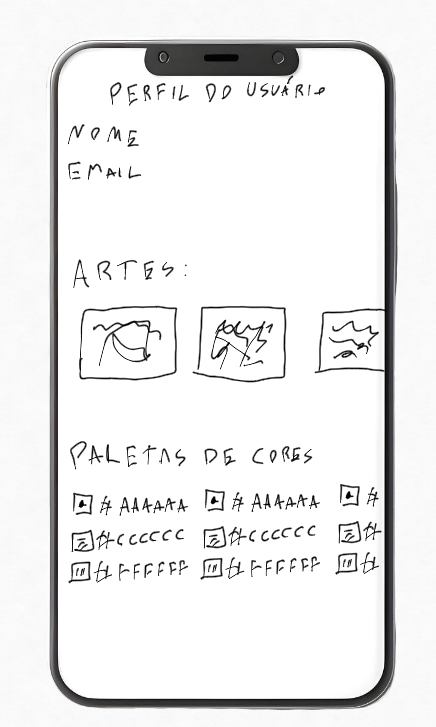 PERFIL DO USUÁRIO
NOME
EMAIL
ARTES:
PALETAS DE CORES
# AAAAAA # AAAAAA #
#CCCCCC #CCCCCC #
# FFFFFF # FFFFFF #